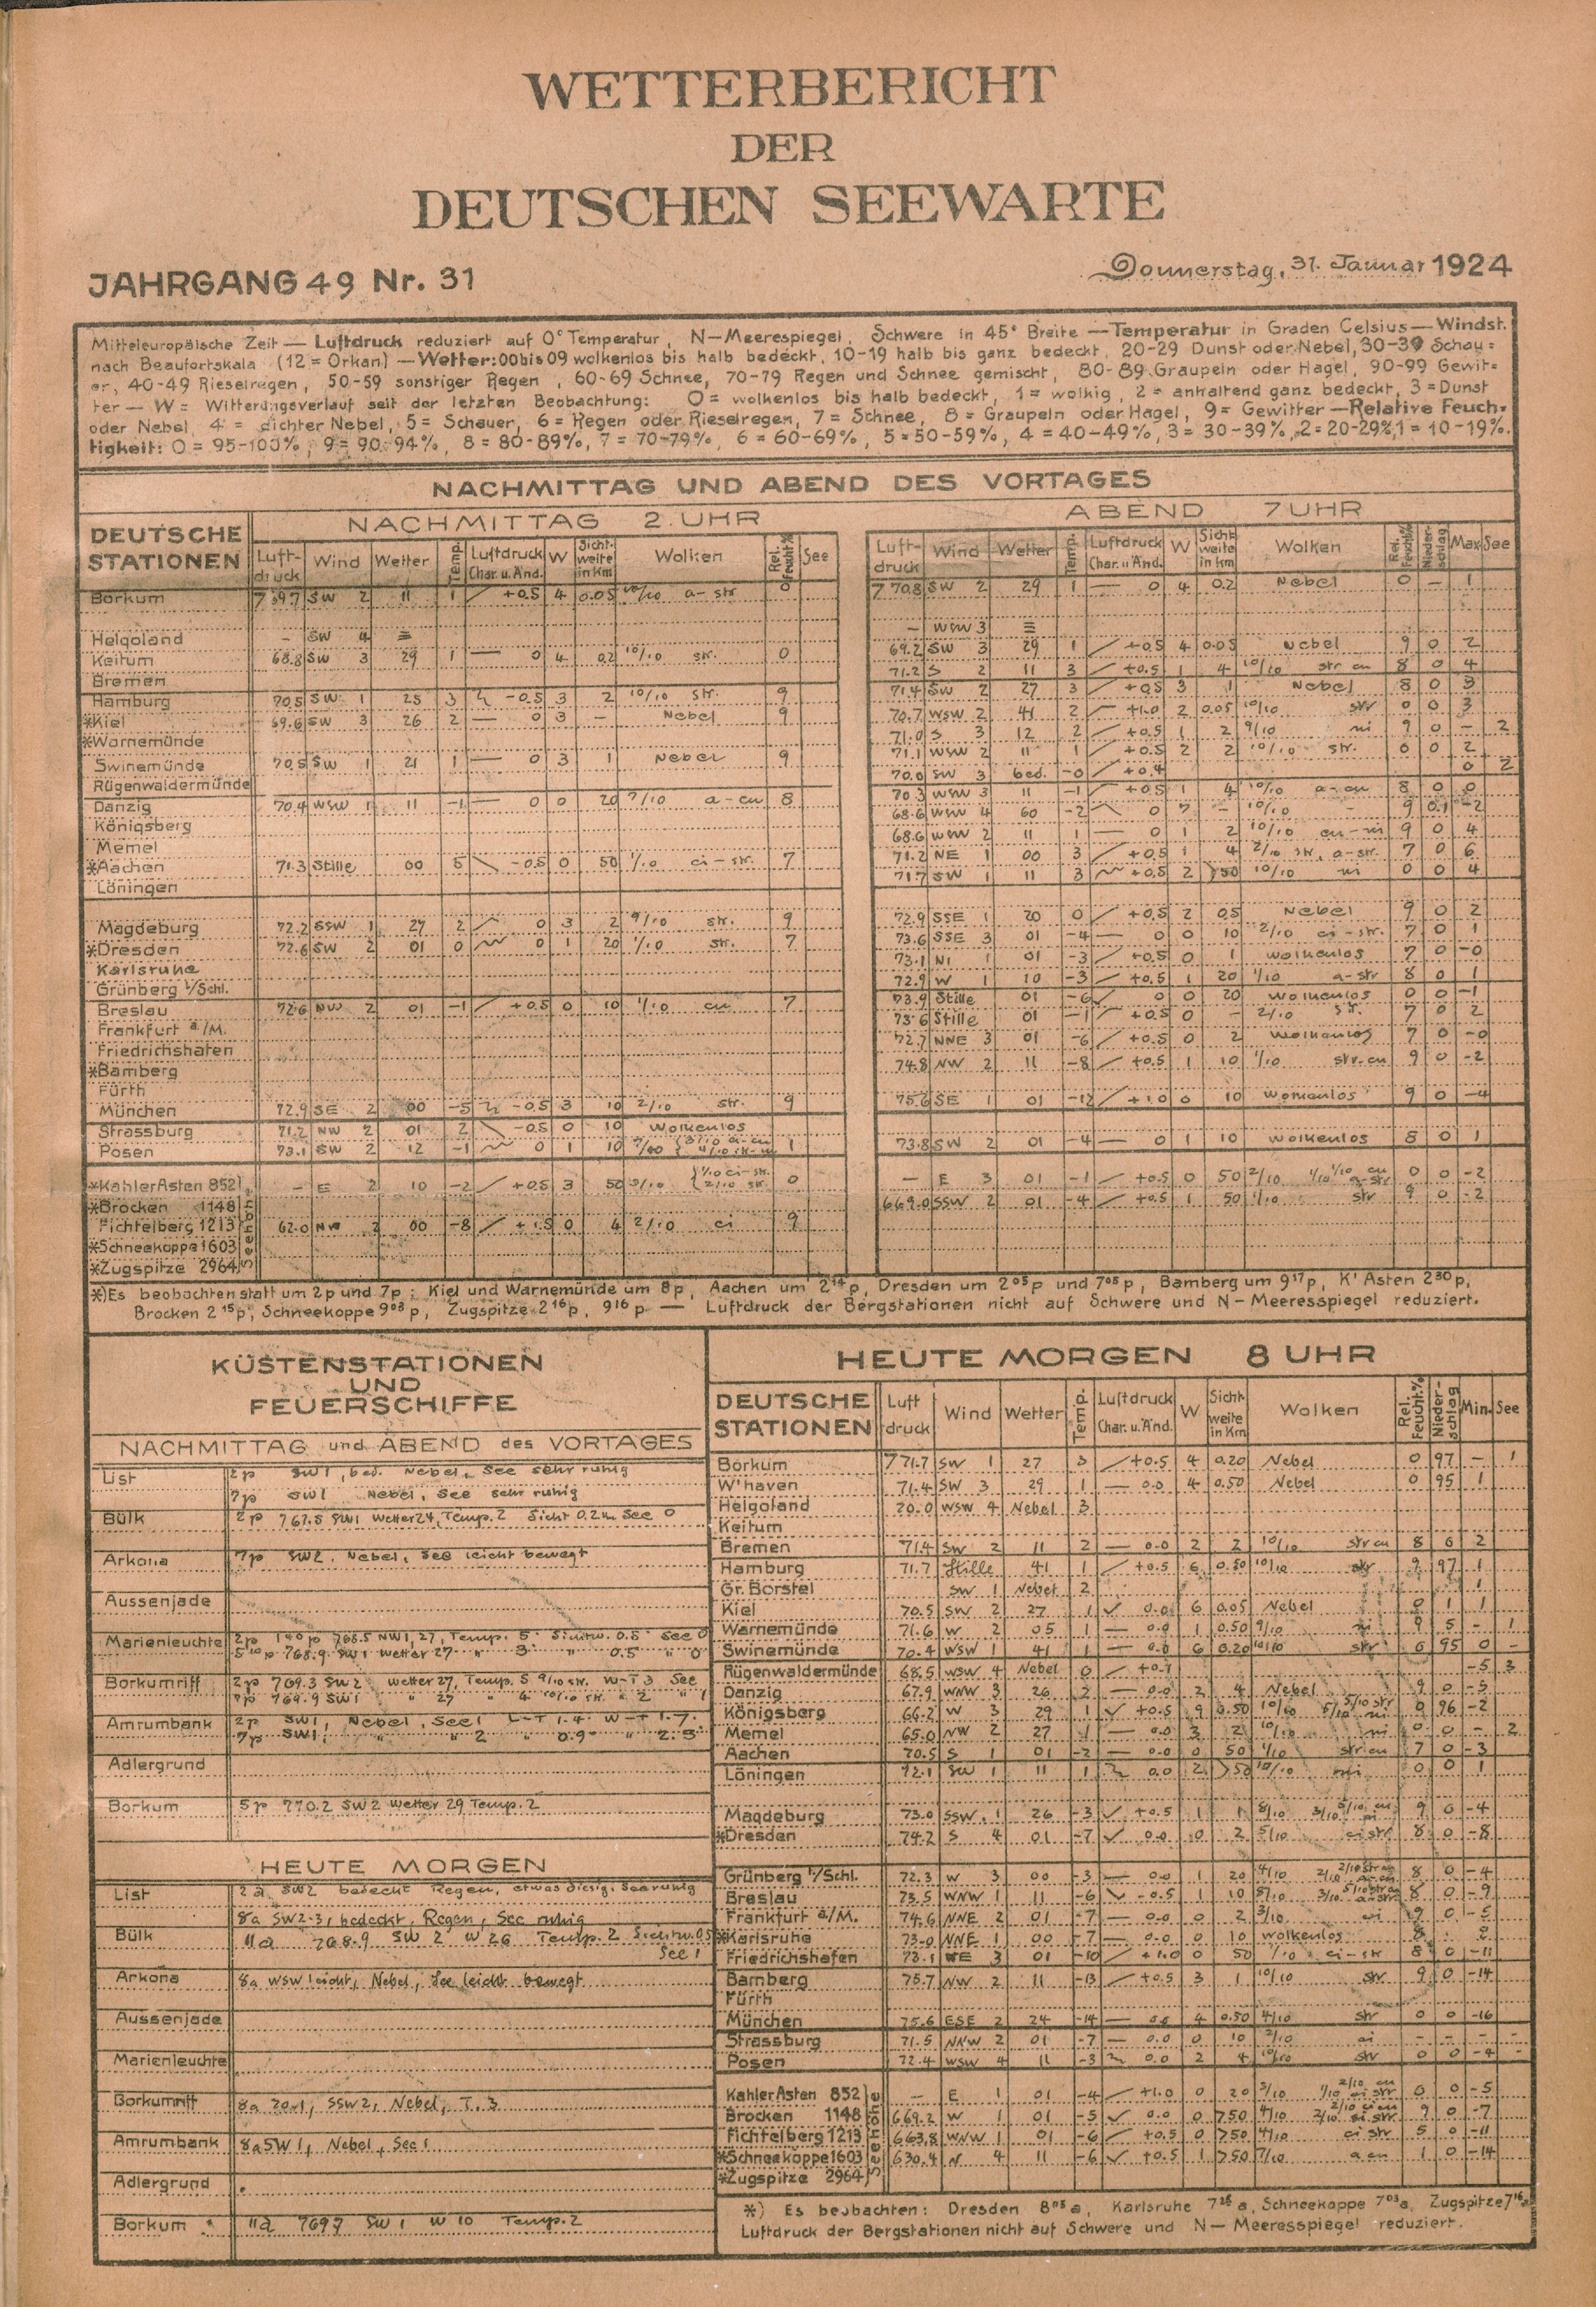 WETTERBERICHT
DER
DEUTSCHEN SEEWARTE
JAHRGANG 49 Nr. 31
Donnerstag, 31. Januar 1924
Mitteleuropäische Zeit — Luftdruck reduziert auf 0° Temperatur, N—Meerespiegel, Schwere in 45° Breite — Temperatur in Graden Celsius — Windst.
nach Beaufortskala (12 = Orkan) — Wetter: 00 bis 09 wolkenlos bis halb bedeckt, 10-19 halb bis ganz bedeckt, 20-29 Dunst oder Nebel, 30-39 Schau=
er, 40-49 Rieselregen, 50-59 sonstiger Regen, 60-69 Schnee, 70-79 Regen und Schnee gemischt, 80-89 Graupeln oder Hagel, 90-99 Gewit=
ter — W = Witterungsverlauf seit der letzten Beobachtung: 0 = wolkenlos bis halb bedeckt, 1 = wolkig, 2 = anhaltend ganz bedeckt, 3 = Dunst
oder Nebel, 4 = dichter Nebel, 5 = Schauer, 6 = Regen oder Rieselregen, 7 = Schnee, 8 = Graupeln oder Hagel, 9 = Gewitter — Relative Feuch=
tigkeit: 0 = 95-100%, 9 = 90-94%, 8 = 80-89%, 7 = 70-79%, 6 = 60-69%, 5 = 50-59%, 4 = 40-49%, 3 = 30-39%, 2 = 20-29%, 1 = 10-19%.
NACHMITTAG UND ABEND DES VORTAGES
DEUTSCHE STATIONEN
NACHMITTAG 2 UHR
Luftdruck Wind Wetter Temp. Luftdruck Char. u. Änd. W Sichtweite in Km Wolken Rel. Feucht.% See
Borkum 769.7 SW 2 11 1 +0.5 4 0.05 10/10 a-str 0
Helgoland – SW 4 ≡
Keitum 68.8 SW 3 29 1 — 0 4 0.2 10/10 str. 0
Bremen
Hamburg 70.5 SW 1 25 3 -0.5 3 2 10/10 str. 9
*Kiel 69.6 SW 3 26 2 — 0 3 – Nebel 9
*Warnemünde
Swinemünde 70.5 SW 1 21 1 — 0 3 1 Nebel 9
Rügenwaldermünde
Danzig 70.4 WSW 1 11 -1 — 0 0 20 7/10 a-cu 8
Königsberg
Memel
*Aachen 71.3 Stille 00 5 -0.5 0 50 1/10 ci-str. 7
Löningen
Magdeburg 72.2 SSW 1 27 2 0 3 2 9/10 str. 9
*Dresden 72.6 SW 2 01 0 0 1 20 1/10 str. 7
Karlsruhe
Grünberg i/Schl.
Breslau 72.6 NW 2 01 -1 +0.5 0 10 1/10 cu 7
Frankfurt a/M.
Friedrichshafen
*Bamberg
Fürth
München 72.9 SE 2 00 -5 -0.5 3 10 2/10 str. 9
Strassburg 71.2 NW 2 01 2 -0.5 0 10 wolkenlos
Posen 73.1 SW 2 12 -1 0 1 10
*Kahler Asten 852 – E 2 10 -2 +0.5 3 50 1/10 ci-str. 2/10 str. 0
*Brocken 1148
Fichtelberg 1213 62.0 NW 00 -8 0 4 2/10 ci 9
*Schneekoppe 1603
*Zugspitze 2964
Seehöhe
ABEND 7 UHR
Luftdruck Wind Wetter Temp. Luftdruck Char. u. Änd. W Sichtweite in Km Wolken Rel. Feucht.% Niederschlag Max See
770.8 SW 2 29 1 — 0 4 0.2 Nebel 0 – 1
– WSW 3 ≡
69.2 SW 3 29 1 +0.5 4 0.05 Nebel 9 0 2
71.2 S 2 11 3 +0.5 1 4 10/10 str cu 8 0 4
71.4 SW 2 27 3 +0.5 3 1 Nebel 8 0 3
70.7 WSW 2 41 2 +1.0 2 0.05 10/10 str 0 0 3
71.0 S 3 12 2 +0.5 1 2 9/10 ni 9 0 – 2
71.1 WSW 2 11 1 +0.5 2 2 10/10 str. 0 0 2
70.0 SW 3 bed. -0 +0.4 0 2
70.3 WSW 3 11 -1 +0.5 1 4 10/10 a-cu 8 0 0
68.6 WSW 4 60 -2 0 7 – 10/10 – 9 0.1 -2
68.6 WSW 2 11 1 — 0 1 2 10/10 cu-ni 9 0 4
71.2 NE 1 00 3 +0.5 1 4 2/10 str, a-str. 7 0 6
71.7 SW 1 11 3 +0.5 2 >50 10/10 ni 0 0 4
72.9 SSE 1 20 0 +0.5 2 0.5 Nebel 9 0 2
73.6 SSE 3 01 -4 — 0 0 10 2/10 ci-str. 7 0 1
73.1 01 -3 +0.5 0 1 wolkenlos 7 0 -0
72.9 W 1 10 -3 +0.5 1 20 1/10 a-str 8 0 1
73.9 Stille 01 -6 0 0 20 wolkenlos 0 0 -1
73.6 Stille 01 -1 +0.5 0 – 2/10 str. 7 0 2
72.7 NNE 3 01 -6 +0.5 0 2 wolkenlos 7 0 -0
74.8 NW 2 11 -8 +0.5 1 10 1/10 str-cu 9 0 -2
75.6 SE 1 01 -12 +1.0 0 10 wolkenlos 9 0 -4
73.8 SW 2 01 -4 — 0 1 10 wolkenlos 8 0 1
– E 3 01 -1 +0.5 0 50 2/10 1/10 cu 1/10 a-str 0 0 -2
669.0 SSW 2 01 -4 +0.5 1 50 1/10 str 9 0 -2
*) Es beobachten statt um 2p und 7p: Kiel und Warnemünde um 8p, Aachen um 2 14 p, Dresden um 2 05 p und 7 05 p, Bamberg um 9 17 p, K' Asten 2 30 p,
Brocken 2 15 p, Schneekoppe 9 03 p, Zugspitze 2 16 p, 9 16 p — Luftdruck der Bergstationen nicht auf Schwere und N—Meeresspiegel reduziert.
KÜSTENSTATIONEN
UND
FEUERSCHIFFE
NACHMITTAG und ABEND des VORTAGES
List 2p SW1, bed. Nebel, See sehr ruhig
7p SW1 Nebel, See sehr ruhig
Bülk 2p 767.5 SW1 Wetter 24, Temp. 2 Sicht 0.2 km See 0
Arkona 7p SW2. Nebel, See leicht bewegt
Aussenjade
Marienleuchte 2p 768.5 NW1, 27, Temp. 5 Sichtw. 0.5 See 0
5 10 p 768.9 SW1 Wetter 27 " 3 " 0.5 " 0
Borkumriff 2p 769.3 SW2 Wetter 27, Temp. 5 9/10 str. W-T 3 See
7p 769.9 SW1 " 27 " 4 10/10 str. " 2 " 1
Amrumbank 2p SW1, Nebel, See 1 L-T 1.4 W-T 1.7
7p SW1, " " 2 " 0.9 " 2.5
Adlergrund
Borkum 5p 770.2 SW2 Wetter 29 Temp. 2
HEUTE MORGEN
List 2a SW2 bedeckt Regen, etwas diesig, See ruhig
8a SW2-3, bedeckt, Regen, See ruhig
Bülk 11a 768.9 SW 2 W 26 Temp. 2 Sichtw. 0.5
See 1
Arkona 8a WSW leicht, Nebel, See leicht bewegt
Aussenjade
Marienleuchte
Borkumriff 8a 70.1, SSW2, Nebel, T. 3
Amrumbank 8a SW1, Nebel, See 1
Adlergrund
Borkum 11a 769.7 SW 1 W 10 Temp. 2
HEUTE MORGEN 8 UHR
DEUTSCHE STATIONEN
Luftdruck Wind Wetter Temp. Luftdruck Char. u. Änd. W Sichtweite in Km Wolken Rel. Feucht.% Niederschlag Min. See
Borkum 771.7 SW 1 27 3 +0.5 4 0.20 Nebel 0 97 – 1
W'haven 71.4 SW 3 29 1 — 0.0 4 0.50 Nebel 0 95 1
Helgoland 70.0 WSW 4 Nebel 3
Keitum
Bremen 71.4 SW 2 11 2 — 0.0 2 2 10/10 str cu 8 6 2
Hamburg 71.7 Stille 41 1 +0.5 6 0.50 10/10 str 9 97 1
Gr. Borstel SW 1 Nebel 2 1
Kiel 70.5 SW 2 27 1 0.0 6 0.05 Nebel 0 1 1
Warnemünde 71.6 W 2 05 1 — 0.0 1 0.50 9/10 ni 9 5 – 1
Swinemünde 70.4 WSW 1 41 1 — 0.0 6 0.20 10/10 str 0 95 0 –
Rügenwaldermünde 68.5 WSW 4 Nebel 0 +0.1 -5 3
Danzig 67.9 WNW 3 26 2 — 0.0 2 4 Nebel 9 0 -5
Königsberg 66.2 W 3 29 1 +0.5 9 0.50 10/10 5/10 str 5/10 ni 0 96 -2
Memel 65.0 NW 2 27 1 — 0.0 3 2 10/10 ni 0 0 – 2
Aachen 70.5 S 1 01 -2 — 0.0 0 50 1/10 str cu 7 0 -3
Löningen 72.1 SW 1 11 1 0.0 2 >50 10/10 ni 0 0 1
Magdeburg 73.0 SSW 1 26 -3 +0.5 1 1 8/10 9 0 -4
*Dresden 74.2 S 4 01 -7 0.0 0 2 5/10 ci str 8 0 -8
Grünberg i/Schl. 72.3 W 3 00 -3 — 0.0 1 20 4/10 8 0 -4
Breslau 73.5 WNW 1 11 -6 -0.5 1 10 8/10 8 0 -9
Frankfurt a/M. 74.6 NNE 2 01 -7 — 0.0 0 2 3/10 ci 9 0 -5
*Karlsruhe 73.0 NNE 1 00 -7 — 0.0 0 10 wolkenlos 8
Friedrichshafen 73.1 3 01 -10 +1.0 0 50 1/10 ci-str 8 0 -11
Bamberg 75.7 NW 2 11 -13 +0.5 3 1 10/10 str 9 0 -14
Fürth
München 75.6 ESE 2 24 -14 — 0.0 4 0.50 4/10 str 0 0 -16
Strassburg 71.5 NNW 2 01 -7 — 0.0 0 10 2/10 ci – – – –
Posen 72.4 WSW 4 11 -3 0.0 2 4 10/10 str 0 0 -4 –
Kahler Asten 852 – E 1 01 -4 +1.0 0 20 3/10 2/10 cu 1/10 ci str 0 0 -5
Brocken 1148 669.2 W 1 01 -5 0.0 0 >50 4/10 2/10 ci cu 2/10 ci str 9 0 -7
Fichtelberg 1213 663.8 WNW 1 01 -6 +0.5 0 >50 4/10 ci str 5 0 -11
*Schneekoppe 1603 630.4 N 4 11 -6 +0.5 1 >50 7/10 a cu 1 0 -14
*Zugspitze 2964
Seehöhe
*) Es beobachten: Dresden 8 05 a, Karlsruhe 7 26 a, Schneekoppe 7 03 a, Zugspitze 7 16 a
Luftdruck der Bergstationen nicht auf Schwere und N—Meeresspiegel reduziert.